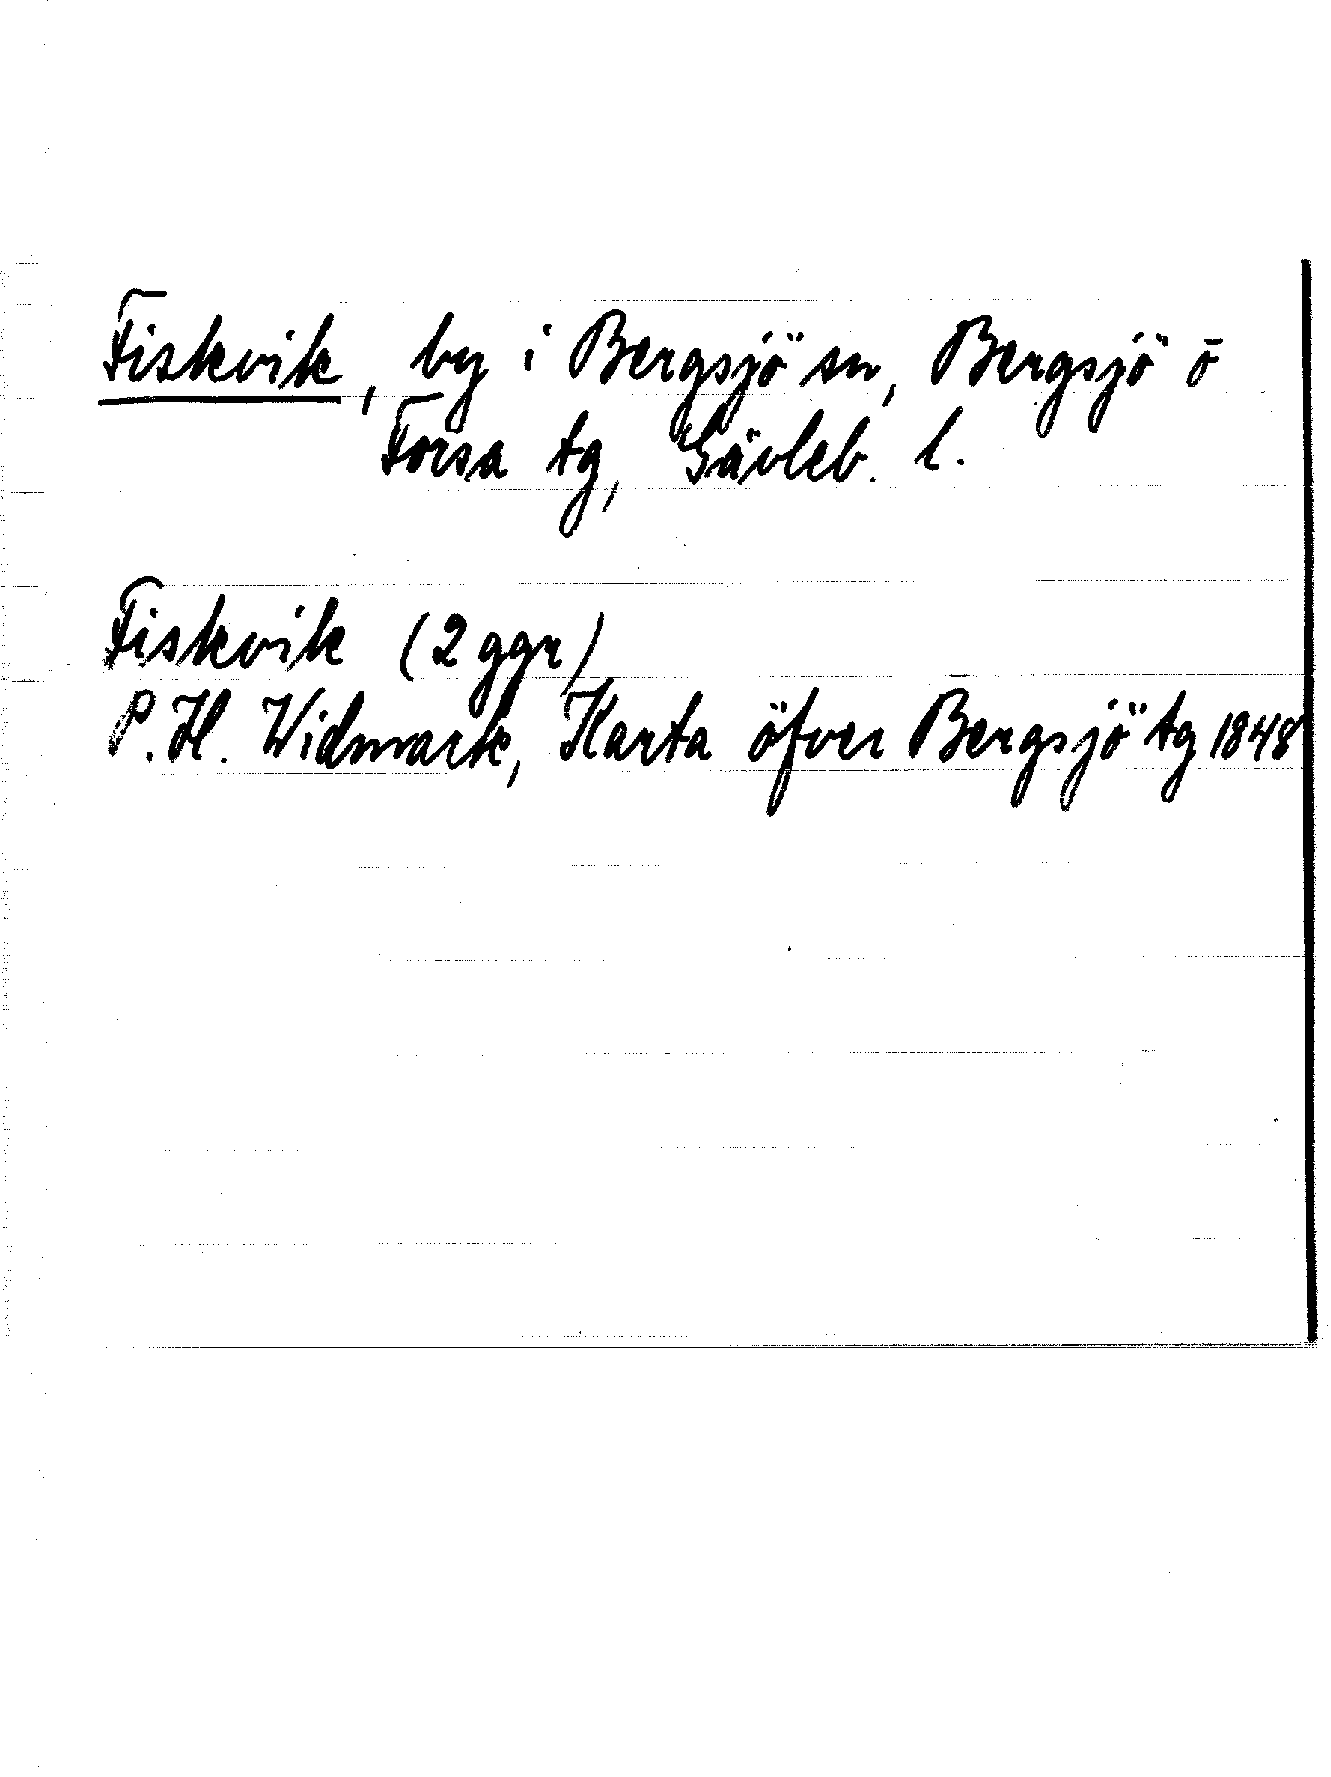 Fiskvik, by i Bergsjö sn, Bergsjö o
Forsa tg, Gävleb. l.
Fiskvik (2 ggr)
P. H. Widmark, Karta öfver Bergsjö tg 1848